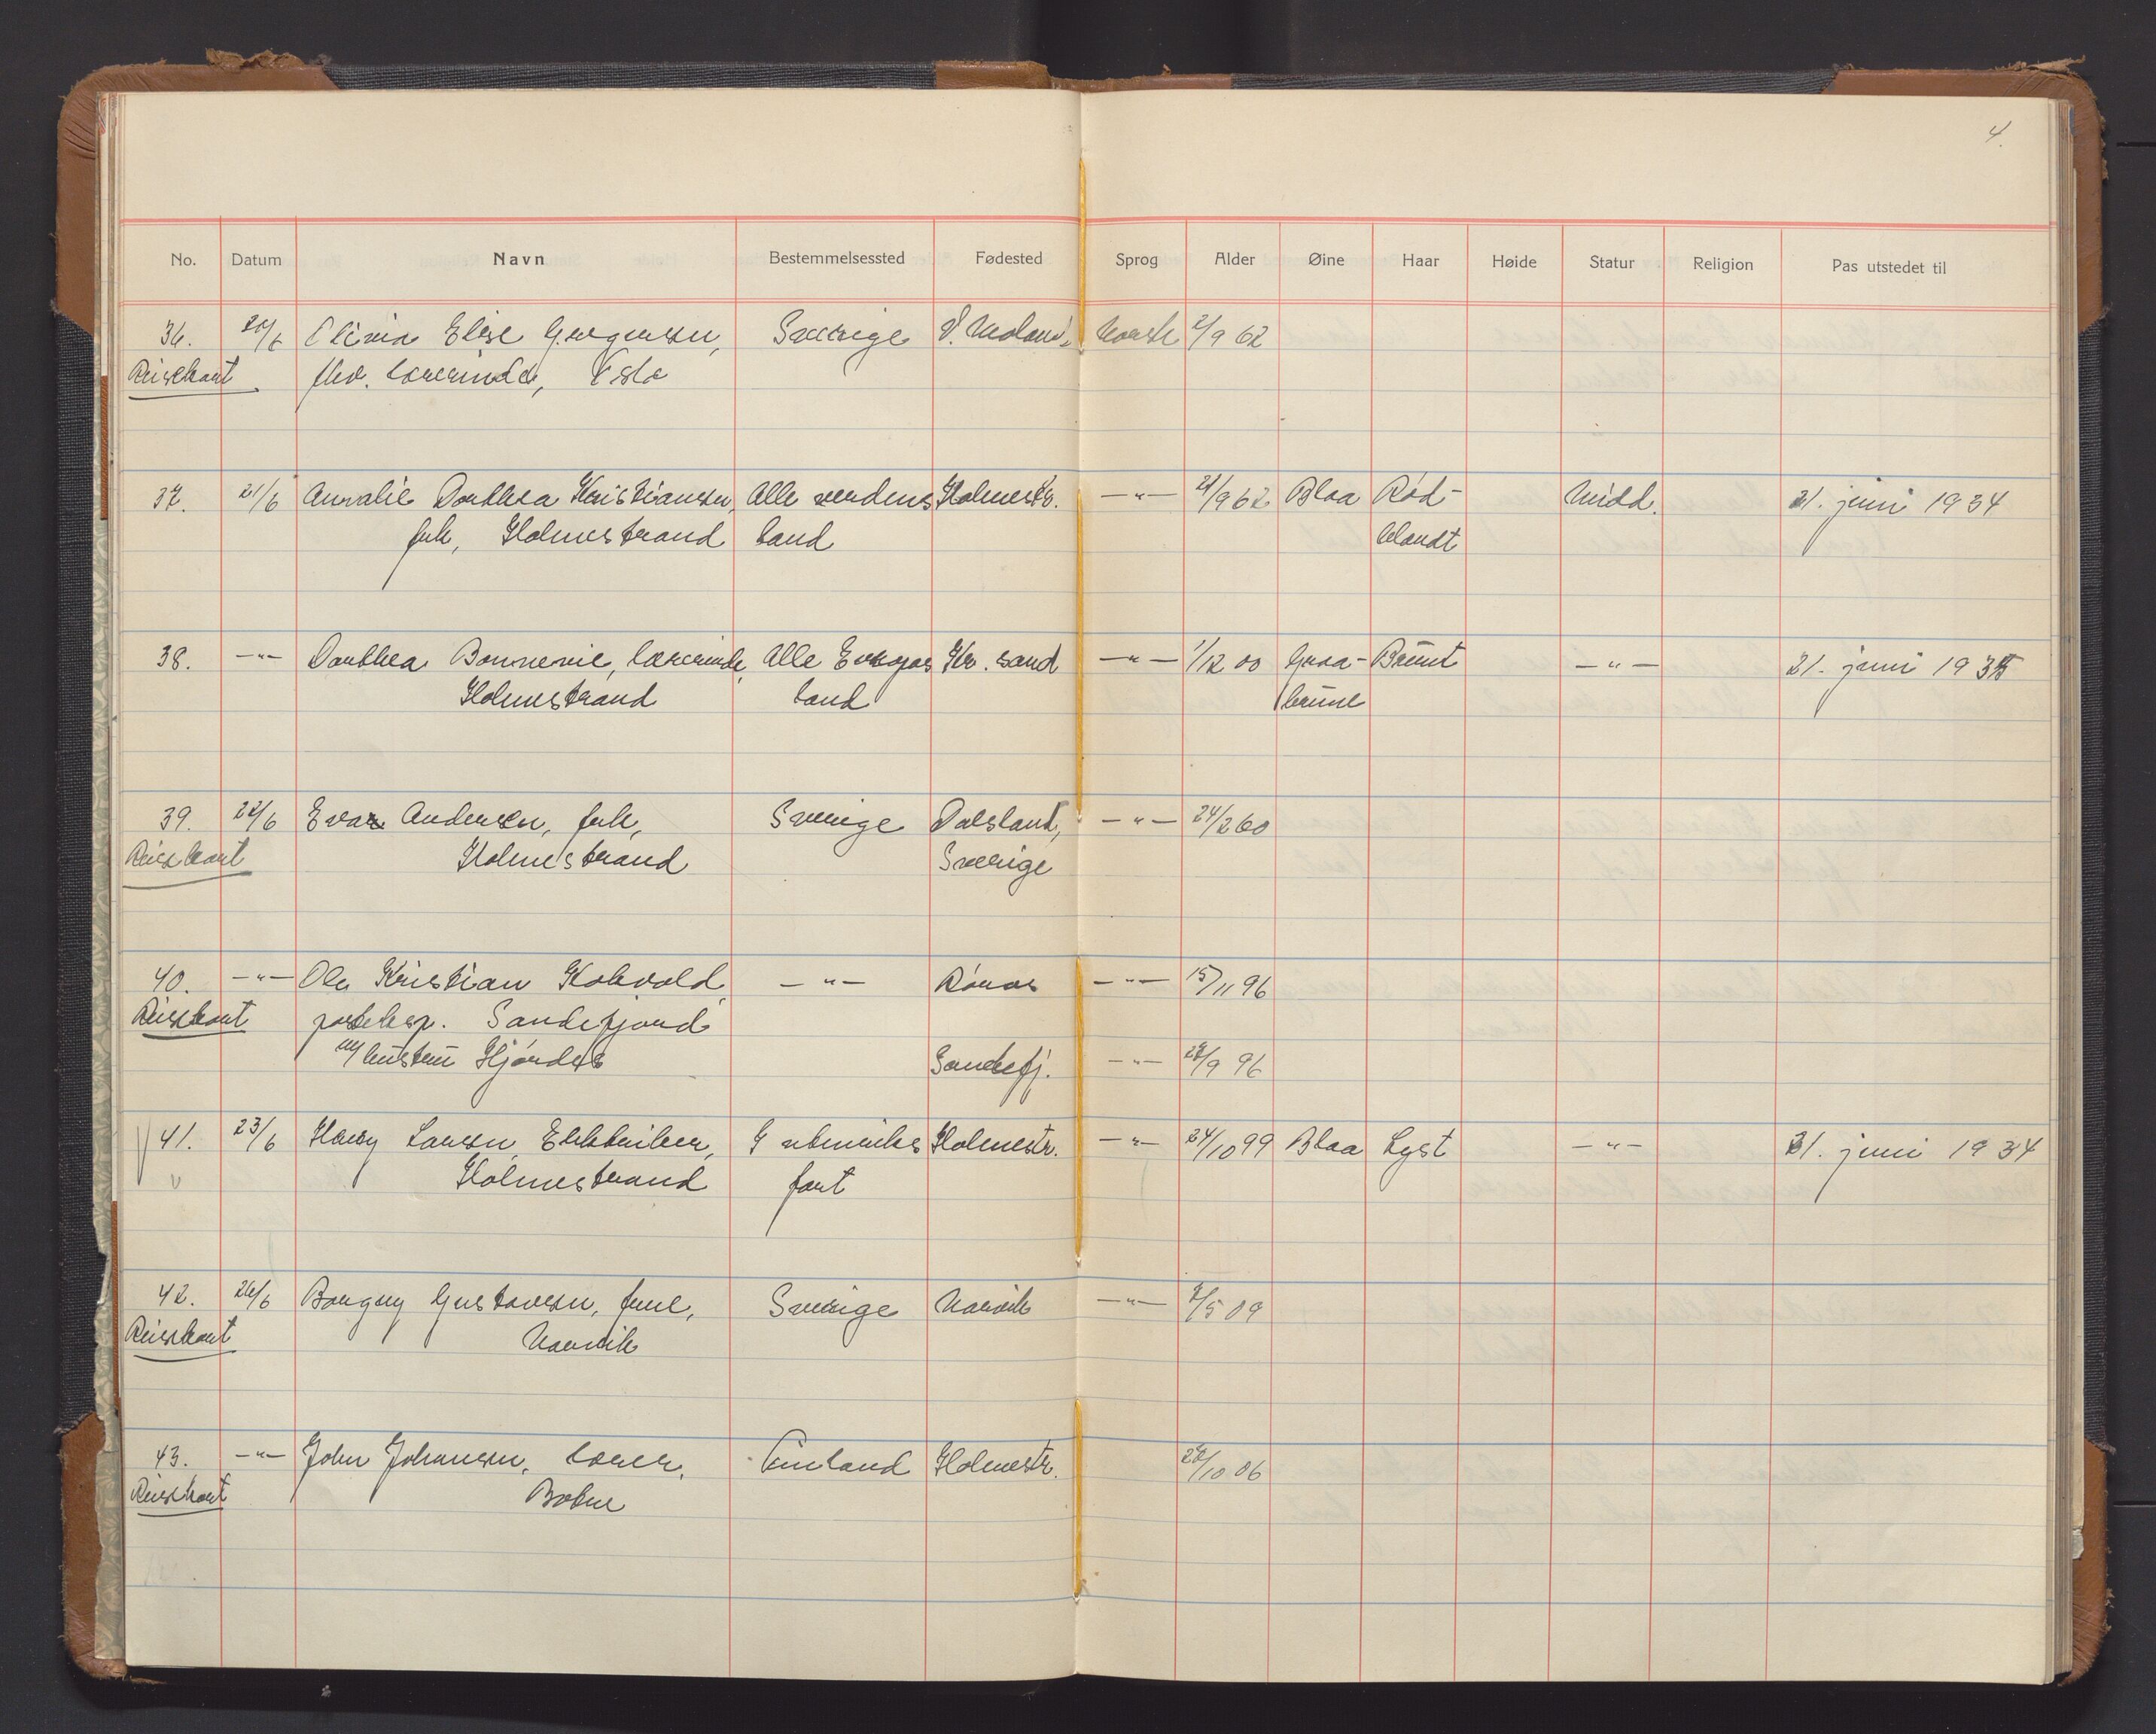 4.
No. Datum Navn Bestemmelsessted Fødested Sprog Alder Øine Haar Høide Statur Religion Pas utstedet til
36. 20/6 Olivia Elise Gregersen, Sverige Ø. Moland, Norsk 2/9 62
Reisekort fhv. lærerinde, Oslo
37. 21/6 Annalie Dorthea Kristiansen, Alle verdens Holmestr. —"— 21/9 62 Blaa Rød- Midd. 21. juni 1934
frk, Holmestrand land blondt
38. —"— Dorthea Bonnevie, lærerinde, Alle Europas Kr. sand —"— 1/12 00 Graa- Brunt —"— 21. juni 1935
Holmestrand land brune
39. 22/6 Eva Andersen, frk, Sverige Dalsland, —"— 24/2 60
Reisekort Holmestrand Sverige
40. —"— Ole Kristian Kokvold, —"— Røros —"— 15/11 96
Reisekort posteksp. Sandefjord
m/ hustru Hjørdis Sandefj. —"— 27/9 96
41. 23/6 Harry Larsen, Elektriker, I utenriks Holmestr. —"— 24/10 99 Blaa Lyst —"— 21. juni 1934
Holmestrand fart
42. 26/6 Borgny Gustavsen, frue, Sverige Narvik —"— 7/5 09
Reisekort Narvik
43. —"— John Johansen, lærer, Finland Holmestr. 22/10 06
Reisekort Botne